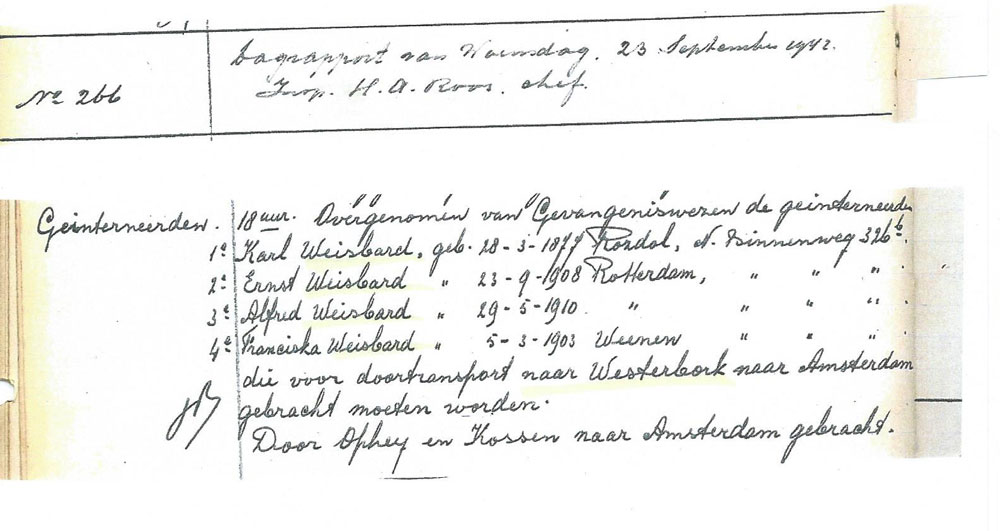 Dagrapport van Woensdag, 23 September 1942.
No 266
Insp. H. A. Roos, chef.
Geïnterneerden. 18 uur. Overgenomen van Gevangeniswezen de geïnterneerde
1e Karl Weisbard, geb. 28-3-1877 Rozdol, N. Binnenweg 326b.
2e Ernst Weisbard " 23-9-1908 Rotterdam, " " "
3e Alfred Weisbard " 29-5-1910. " " " "
4e Franciska Weisbard " 5-3-1903 Weenen " " "
die voor doortransport naar Westerbork naar Amsterdam
gebracht moeten worden.
Door Ophey en Kossen naar Amsterdam gebracht.